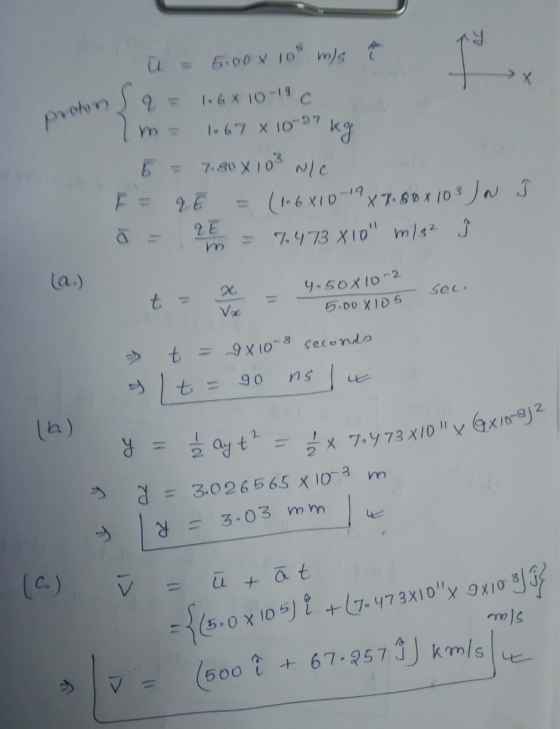 y
x
ū = 5.00 × 10⁵ m/s î
proton { q = 1.6 × 10⁻¹⁹ C
m = 1.67 × 10⁻²⁷ kg
Ē = 7.80 × 10³ N/C
F̄ = qĒ = (1.6×10⁻¹⁹ × 7.80 × 10³) N ĵ
ā = qĒ/m = 7.473 × 10¹¹ m/s² ĵ
(a.)
t = x/Vx = 4.50×10⁻²/5.00×10⁵ sec.
⇒ t = 9×10⁻⁸ seconds
⇒ t = 90 ns
(b.)
y = ½ ay t² = ½ × 7.473×10¹¹ × (9×10⁻⁸)²
⇒ y = 3.026565 × 10⁻³ m
⇒ y = 3.03 mm
(c.) V̄ = ū + ā t
= {(5.0 × 10⁵) î + (7.473×10¹¹ × 9×10⁻⁸) ĵ} m/s
⇒ V̄ = (500 î + 67.257 ĵ) km/s